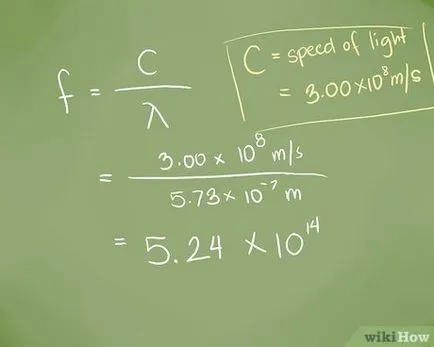 f = C / λ
C = speed of light
= 3.00 x 10⁸ m/s
= 3.00 x 10⁸ m/s / 5.73 x 10⁻⁷ m
= 5.24 x 10¹⁴
wikiHow